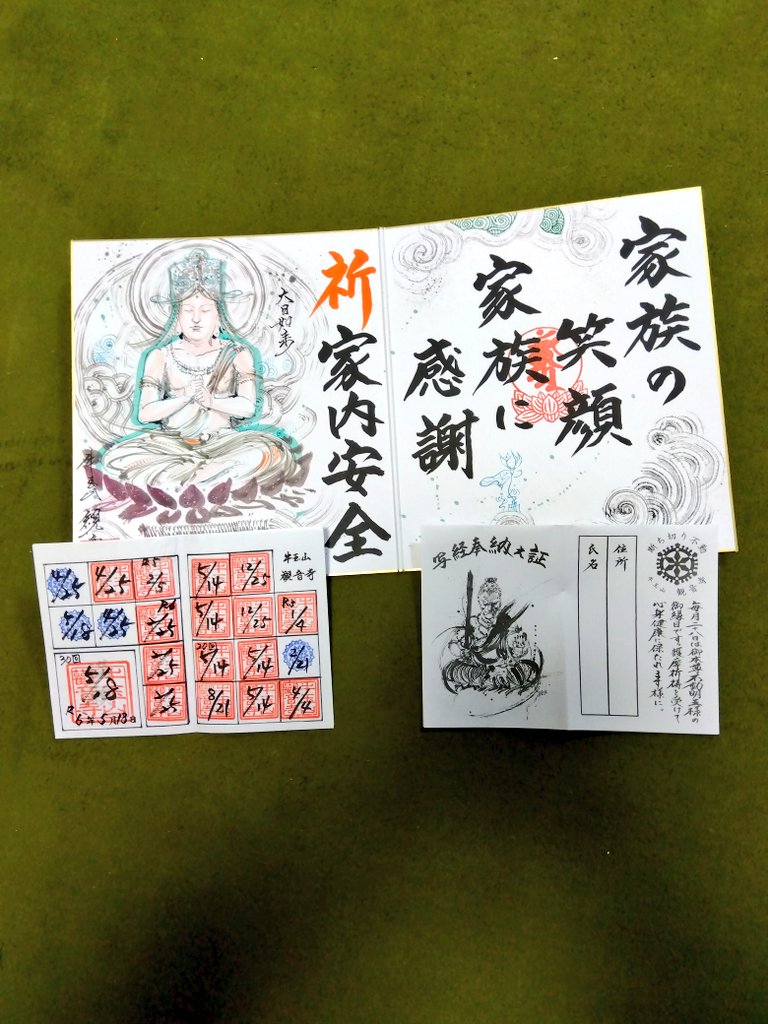 家族の
笑顔
家族に
感謝
祈
家内安全
大日如来
写経奉納大証
住所
氏名
断ち切り不動
牛玉山 観音寺
毎月二十八日は御本尊不動明王様の
御縁日です。護摩祈祷を受けて
心身健康に保たれます様に。
牛玉山
観音寺
5/14
12/25
5/14
12/25
R5 1/4
20回 5/14
5/14
2/21
8/21
5/14
4/4
4/25
4/25
R5 2/5
30回
5/13
R6年5月13日